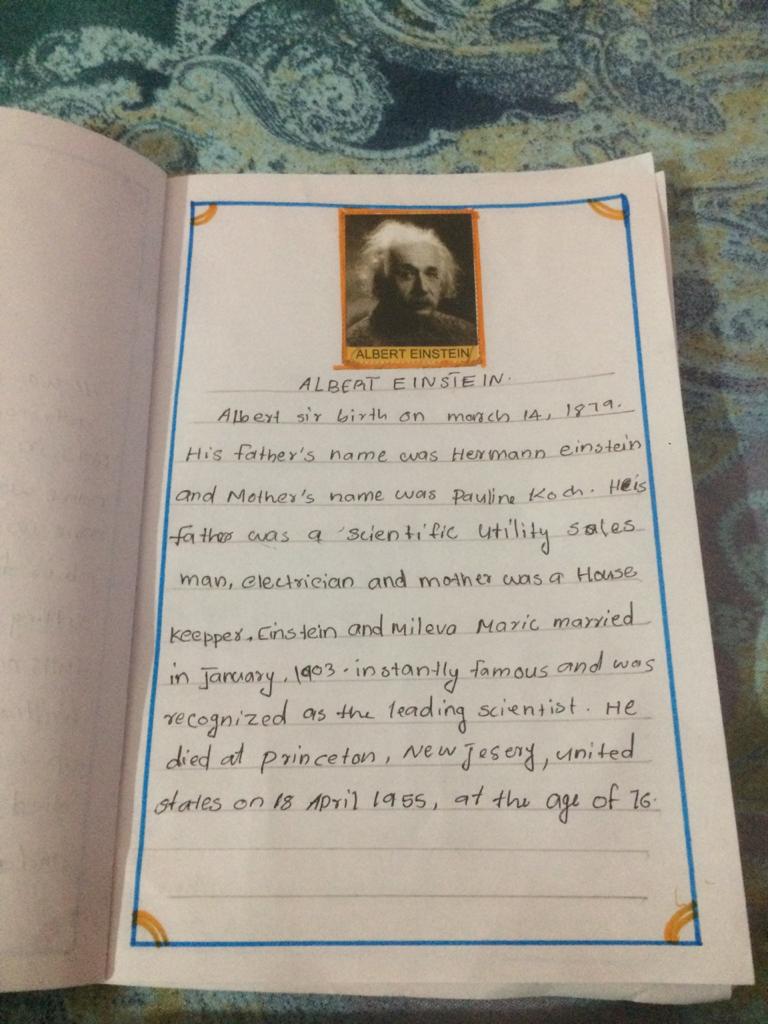 ALBERT EINSTEIN
ALBERT EINSTEIN.
Albert sir birth on march 14, 1879.
His father's name was Hermann einstein
and Mother's name was Pauline Koch. His
father was a scientific utility sales
man, electrician and mother was a House
keepper. Einstein and Mileva Maric married
in January, 1903. instantly famous and was
recognized as the leading scientist. He
died at princeton, New Jesery, united
states on 18 April 1955, at the age of 76.